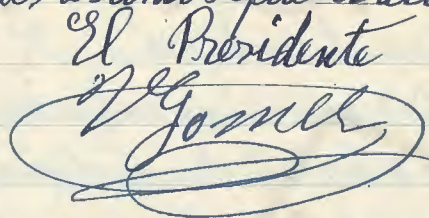 que
El Presidente
VGomez